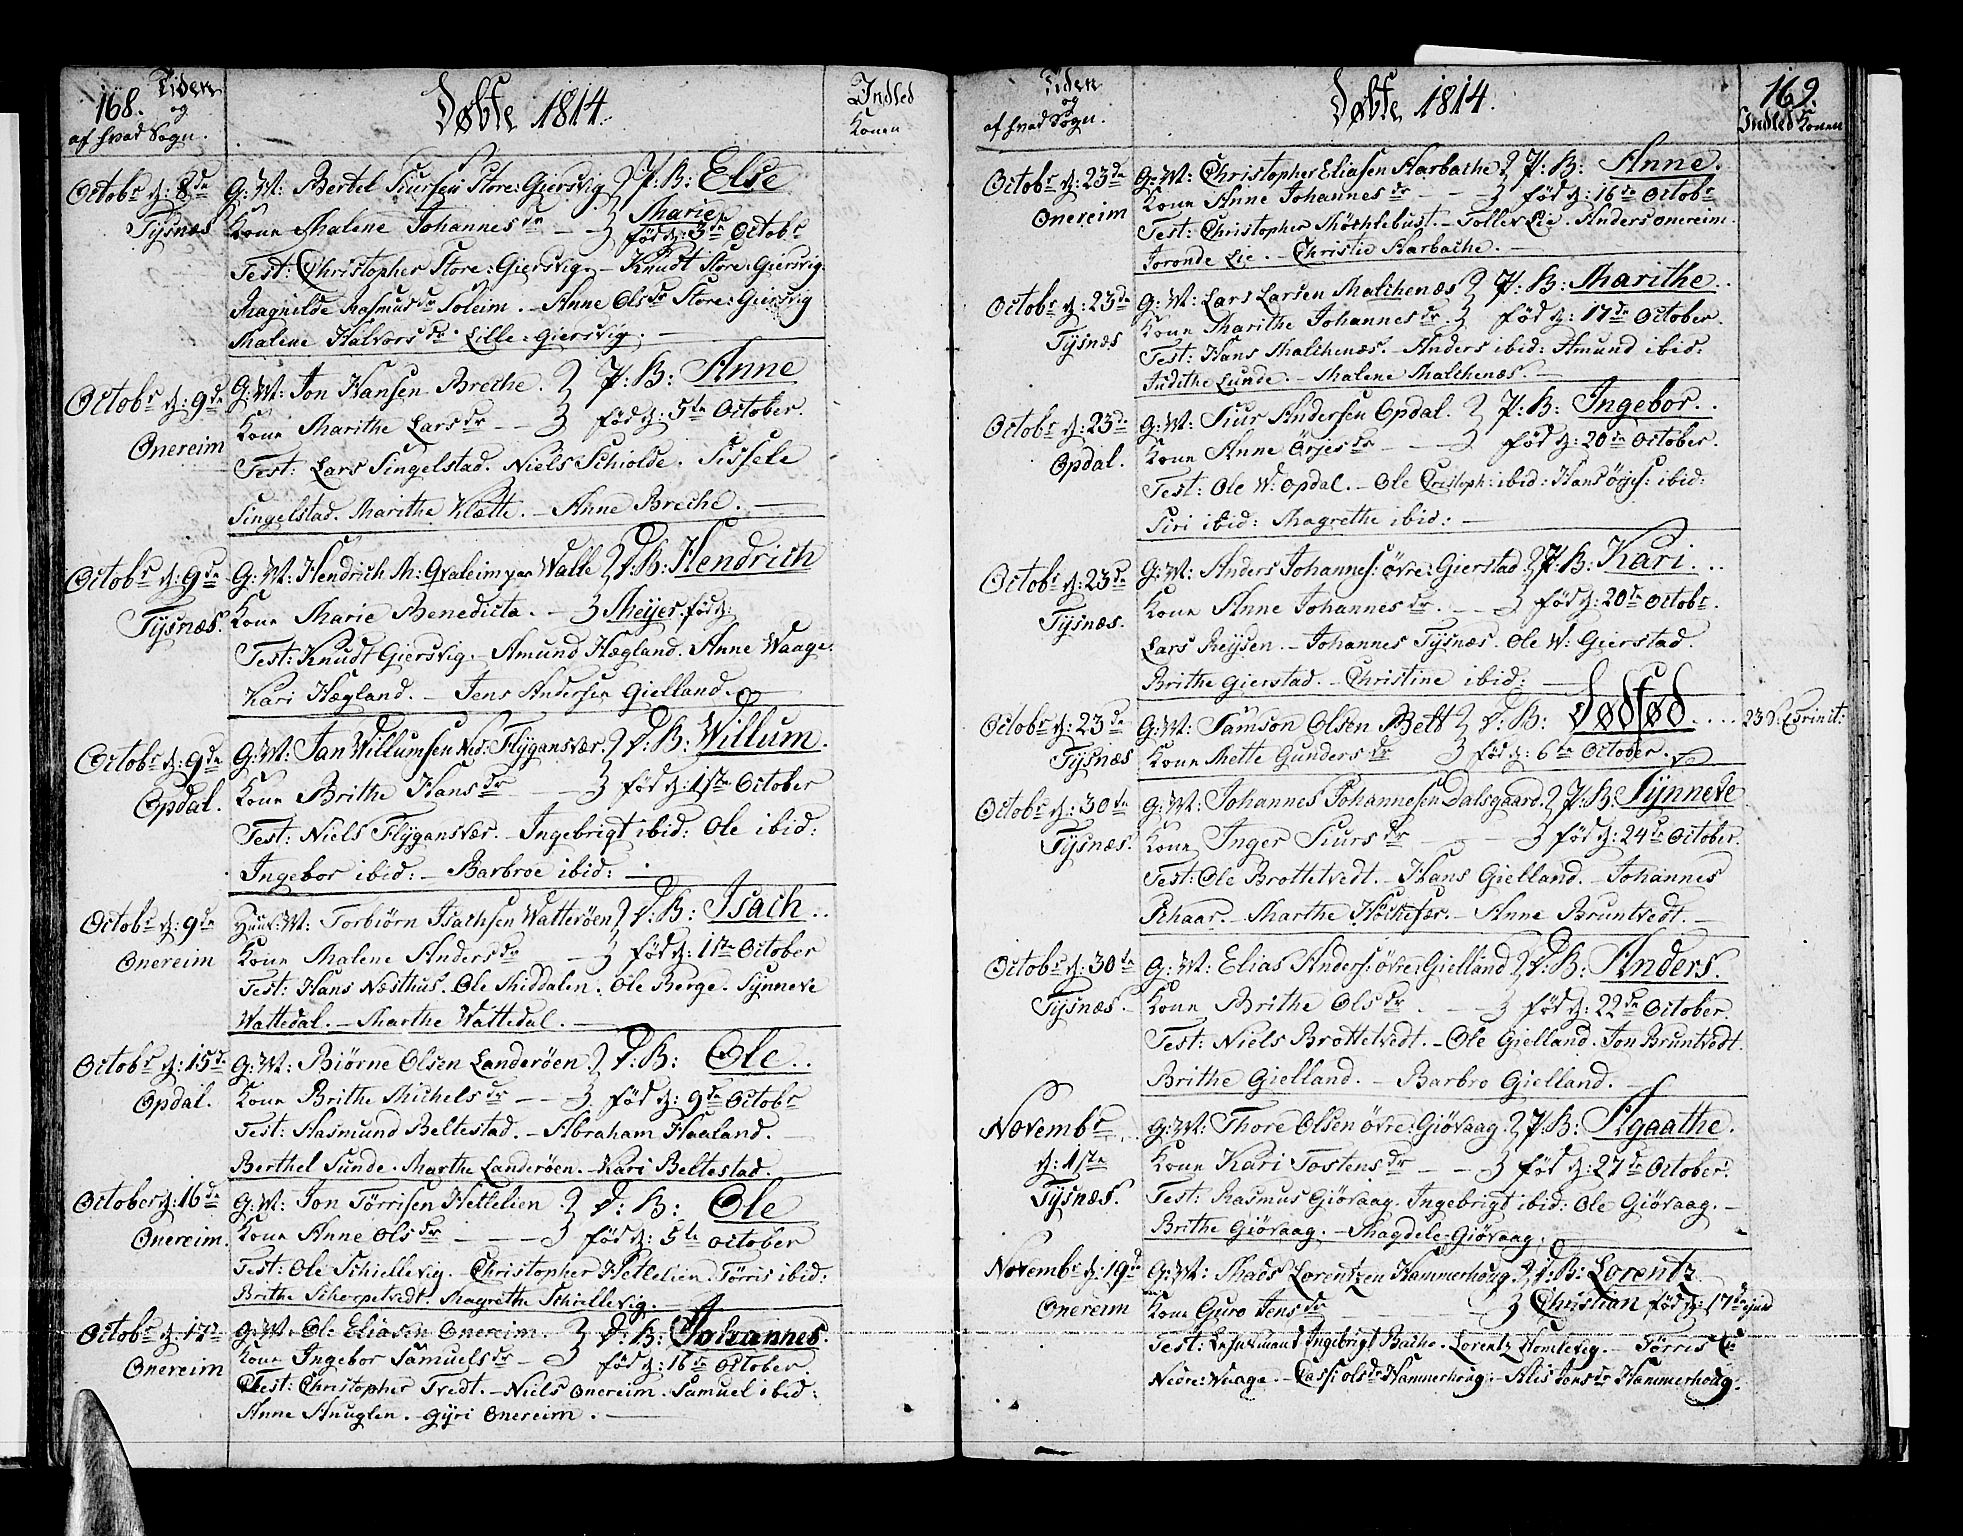 168. Tiden
og
af hvad Sogn.
Døbte 1814.
Indled
Konen
Octobr d: 8de
Tysnæs
G: M: Bertel Siursen Store: Giersvig P: B: Else
Kone Malene Johannesdr Marie
fød d: 3de Octobr
Test: Christopher Store: Giersvig. Knudt Store: Giersvig.
Magnilde Rasmusdr Soleim. Anne Olsdr Store: Giersvig
Malene Halvorsdr Lille: Giersvig.
Octobr d: 9de
Onereim
G: M: Jon Hansen Breche. P: B: Anne
Kone Marithe Larsdr fød d: 5te October.
Test: Lars Singelstad. Niels Schiolde. Sissele
Singelstad. Marithe Klætte. Anne Breche.
Octobr d: 9de
Tysnæs.
G: M: Hendrich M: Gvaleim Walle D: B: Hendrich
Kone Marie Benedicta. Meyer. fød d:
Test: Knudt Giersvig. Amund Hægland. Anne Waage.
Kari Hægland. Jens Andersen Gielland.
Octobr d: 9de
Opdal.
G: M: Jan Willumsen Ned: Flygansvær. D: B: Willum.
Kone Brithe Hansdr fød d: 1ste October
Test: Niels Flygansvær. Ingebrigt ibid: Ole ibid:
Ingebor ibid: Barbroe ibid:
Octobr d: 9de
Onereim
Huus: M: Torbiørn Isachsen Watterøen D: B: Isach.
Kone Malene Andersdr fød d: 1ste October
Test: Hans Næsthus. Ole Middalen. Ole Berge. Synneve
Wattedal. Marthe Wattedal.
Octobr d: 15de
Opdal.
G: M: Biørne Olsen Landerøen D: B: Ole.
Kone Brithe Michelsdr fød d: 9de Octobr
Test: Aasmund Beltestad. Abraham Haaland.
Berthel Sunde. Marthe Landerøen. Kari Beltestad.
October d: 16de
Onereim.
G: M: Jon Tørrisen Hettelien D: B: Ole
Kone Anne Olsdr fød d: 5te october
Test: Ole Schiellevig. Christopher Hettelien. Tørris ibid:
Brithe Schorpetvedt. Magrethe Schiellevig.
Octobr d: 17de
Onereim
G: M: Ole Eliasen Onereim. D: B: Johannes.
Kone Ingebor Samuelsdr fød d: 16de October.
Test: Christopher Tvedt. Niels Onereim. Samuel ibid:
Anne Anuglen. Gyri Onereim.
Tiden
og
af hvad Sogn.
Døbte 1814.
169.
Indled Konen
Octobr d: 23de
Onereim
G: M: Christopher Eliasen Harbache P: B: Anne.
Kone Anne Johannesdr fød d: 16de Octobr
Test: Christopher Møchlebust. Tollev Lie. Anders Onereim.
Joronde Lie. Christie Harbache.
Octobr d: 23de
Tysnæs
G: M: Lars Larsen Malchenæs P: B: Marithe.
Kone Marithe Johannesdr. fød d: 17de October.
Test: Hans Malchenæs. Anders ibid: Amund ibid:
Judithe Lunde. Malene Malchenæs.
Octobr d: 23de
Opdal.
G: M: Siur Andersen Opdal. P: B: Ingebor.
Kone Anne Ørjesdr fød d: 20de October.
Test: Ole W: Opdal. Ole Christoph: ibid: Hans Ørjes: ibid:
Siri ibid: Magrethe ibid:
Octobr d: 23de
Tysnæs.
G: M: Anders Johannes: øvre: Gierstad P: B: Kari.
Kone Anne Johannesdr. fød d: 20de Octobr.
Lars Reysen. Johannes Tysnæs. Ole W: Gierstad.
Brithe Gierstad. Christine ibid:
Octobr d: 23de
Tysnæs
G: M: Samson Olsen Belt D: B: Dødfød
Kone Mette Gundersdr fød d: 6te October.
Octobr d: 30te
Tysnæs.
G: M: Johannes Johannesen Dalsgaard. P: B: Synneve
Kone Inger Siursdr fød d: 24de October.
Test: Ole Brottetvedt. Hans Gielland. Johannes
Rehaar. Marthe Høckefær. Anne Bruntvedt.
Octobr d: 30te
Tysnæs.
G: M: Elias Anders: øvre: Gielland D: B: Anders.
Kone Brithe Olsdr fød d: 22de October.
Test: Niels Brottetvedt. Ole Gielland. Jon Bruntvedt.
Brithe Gielland. Barbro Gielland.
Novembr
d: 1ste
Tysnæs.
G: M: Thore Olsen øvre: Giøvaag. P: B: Agaathe.
Kone Kari Tostensdr fød d: 27de October.
Test: Rasmus Giøvaag. Ingebrigt ibid: Ole Giøvaag.
Brithe Giøvaag. Magdele Giøvaag.
Novembr d: 19de
Onereim
G: M: Mads Lorentzen Hammerhoug D: B: Lorentz
Kone Guro Jensdr Christian fød d: 17de
Test: Ingebrigt Bache. Lorentz Homlevig. Tørris Lie
Nedre: Waage. Olsdr Hammerhoug. Alis Jonsdr Hammerhoug.